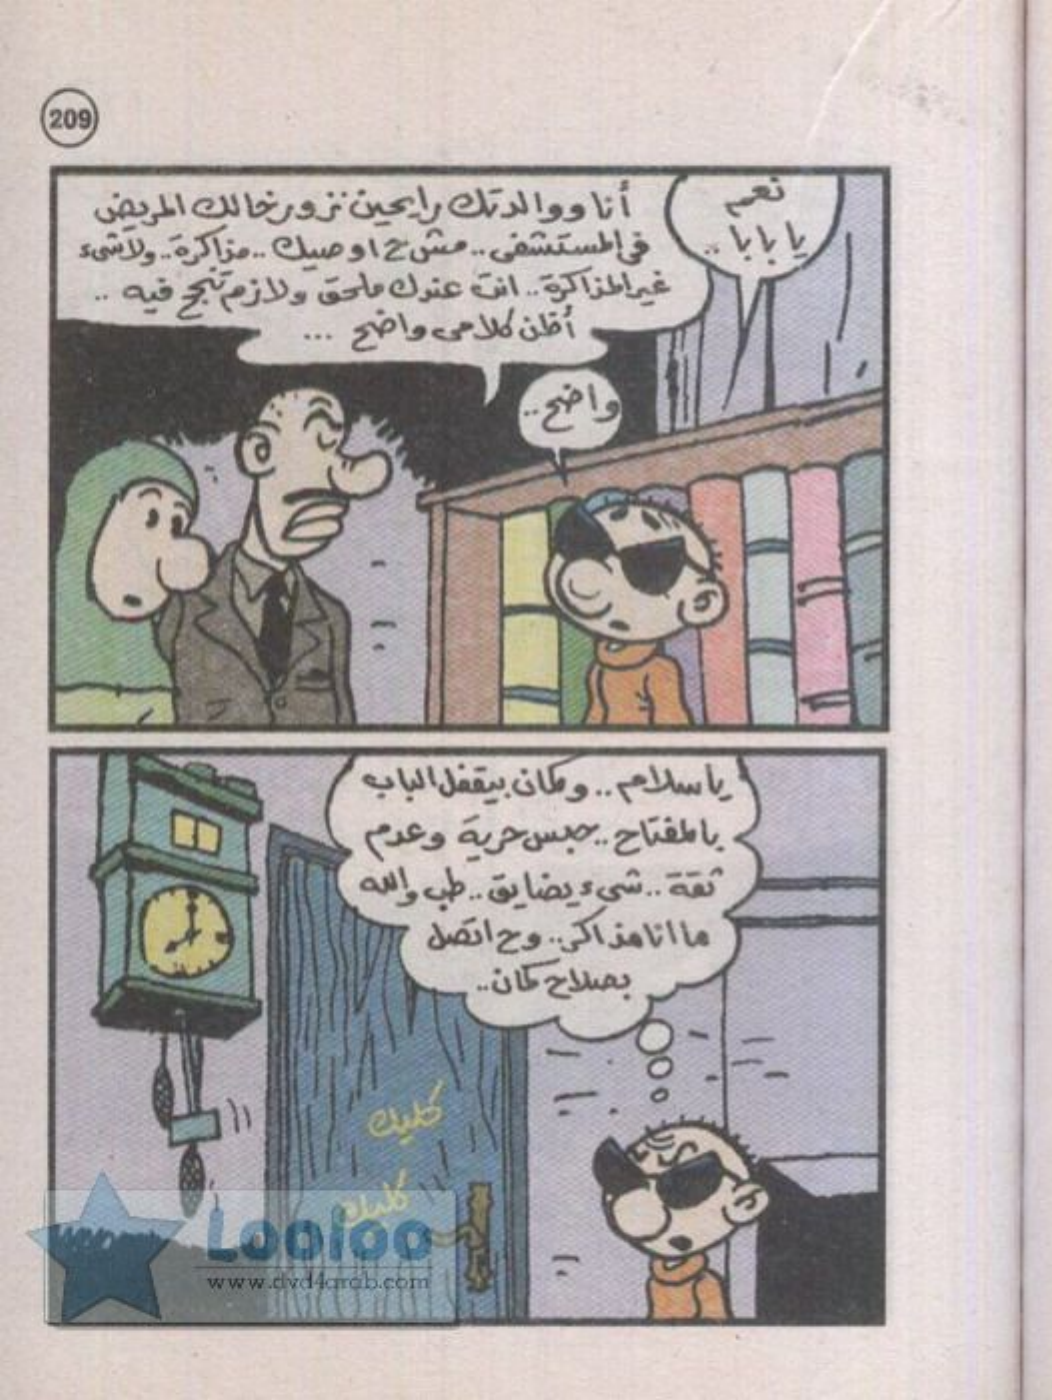 209
نعم
يا بابا ..
أنا ووالدتك رايحين نزور خالك المريض
فى المستشفى .. مش ح اوصيك .. مذاكرة .. ولا شىء
غير المذاكرة .. انت عندك ملحق ولازم تنجح فيه ..
أظن كلامى واضح ...
واضح ..
يا سلام .. وكمان بيقفل الباب
بالمفتاح .. حبس حرية وعدم
ثقة .. شىء يضايق .. طب والله
ما انا مذاكر .. وح اتصل
بصلاح كمان ..
كليك
كليك
Looloo
www.dvd4arab.com